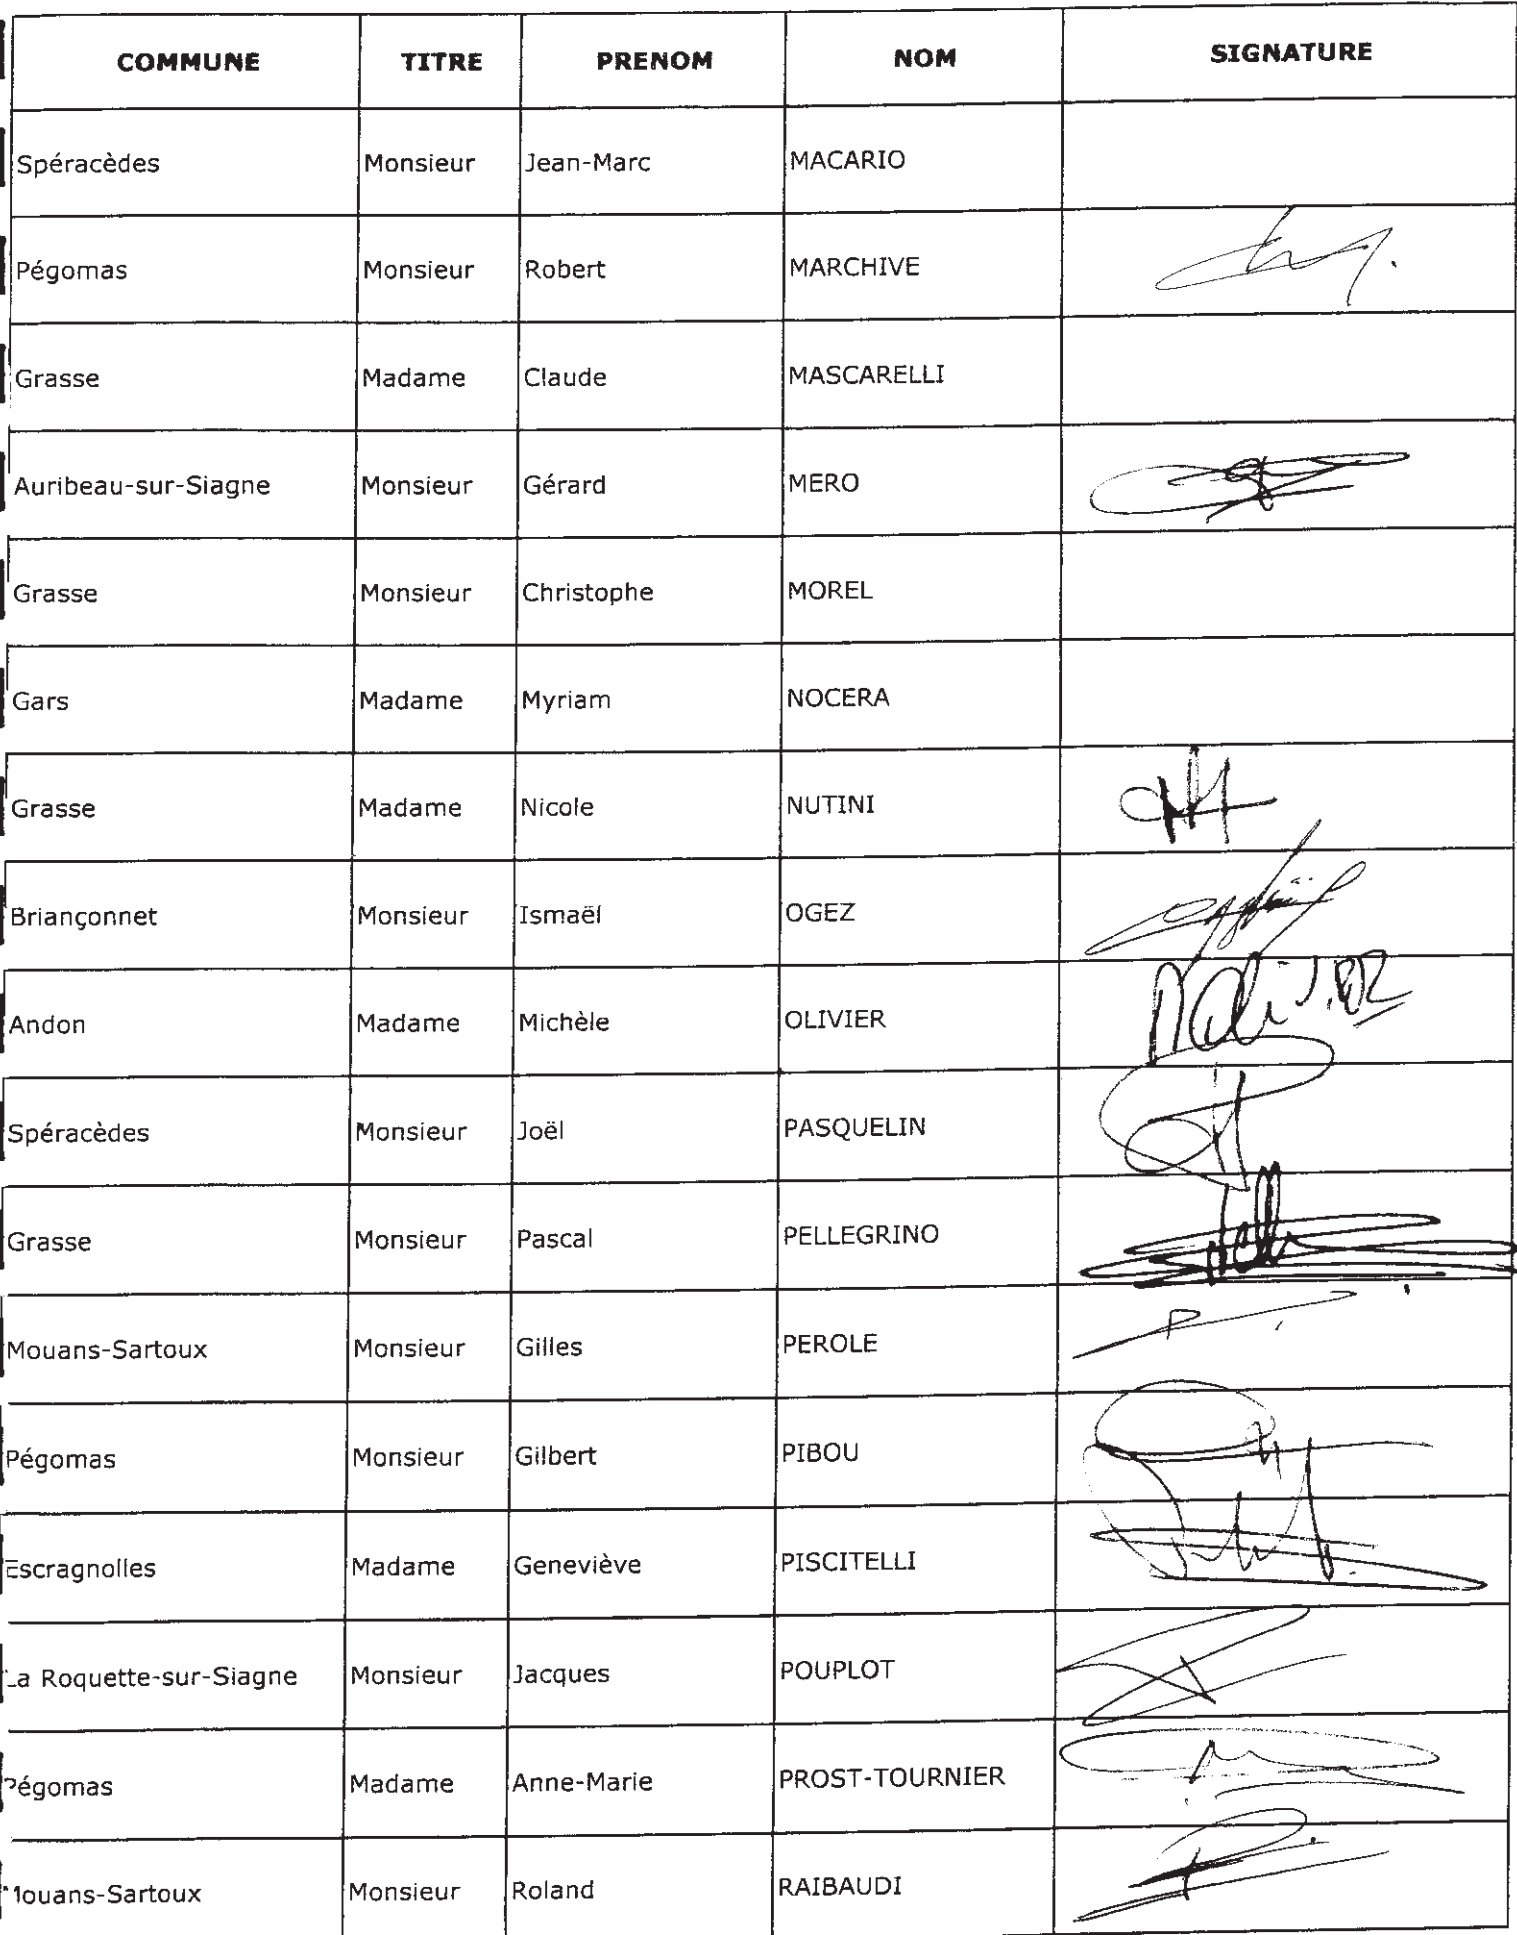 COMMUNE TITRE PRENOM NOM SIGNATURE
Spéracèdes Monsieur Jean-Marc MACARIO
Pégomas Monsieur Robert MARCHIVE
Grasse Madame Claude MASCARELLI
Auribeau-sur-Siagne Monsieur Gérard MERO
Grasse Monsieur Christophe MOREL
Gars Madame Myriam NOCERA
Grasse Madame Nicole NUTINI
Briançonnet Monsieur Ismaël OGEZ
Andon Madame Michèle OLIVIER
Spéracèdes Monsieur Joël PASQUELIN
Grasse Monsieur Pascal PELLEGRINO
Mouans-Sartoux Monsieur Gilles PEROLE
Pégomas Monsieur Gilbert PIBOU
Escragnolles Madame Geneviève PISCITELLI
La Roquette-sur-Siagne Monsieur Jacques POUPLOT
Pégomas Madame Anne-Marie PROST-TOURNIER
Mouans-Sartoux Monsieur Roland RAIBAUDI